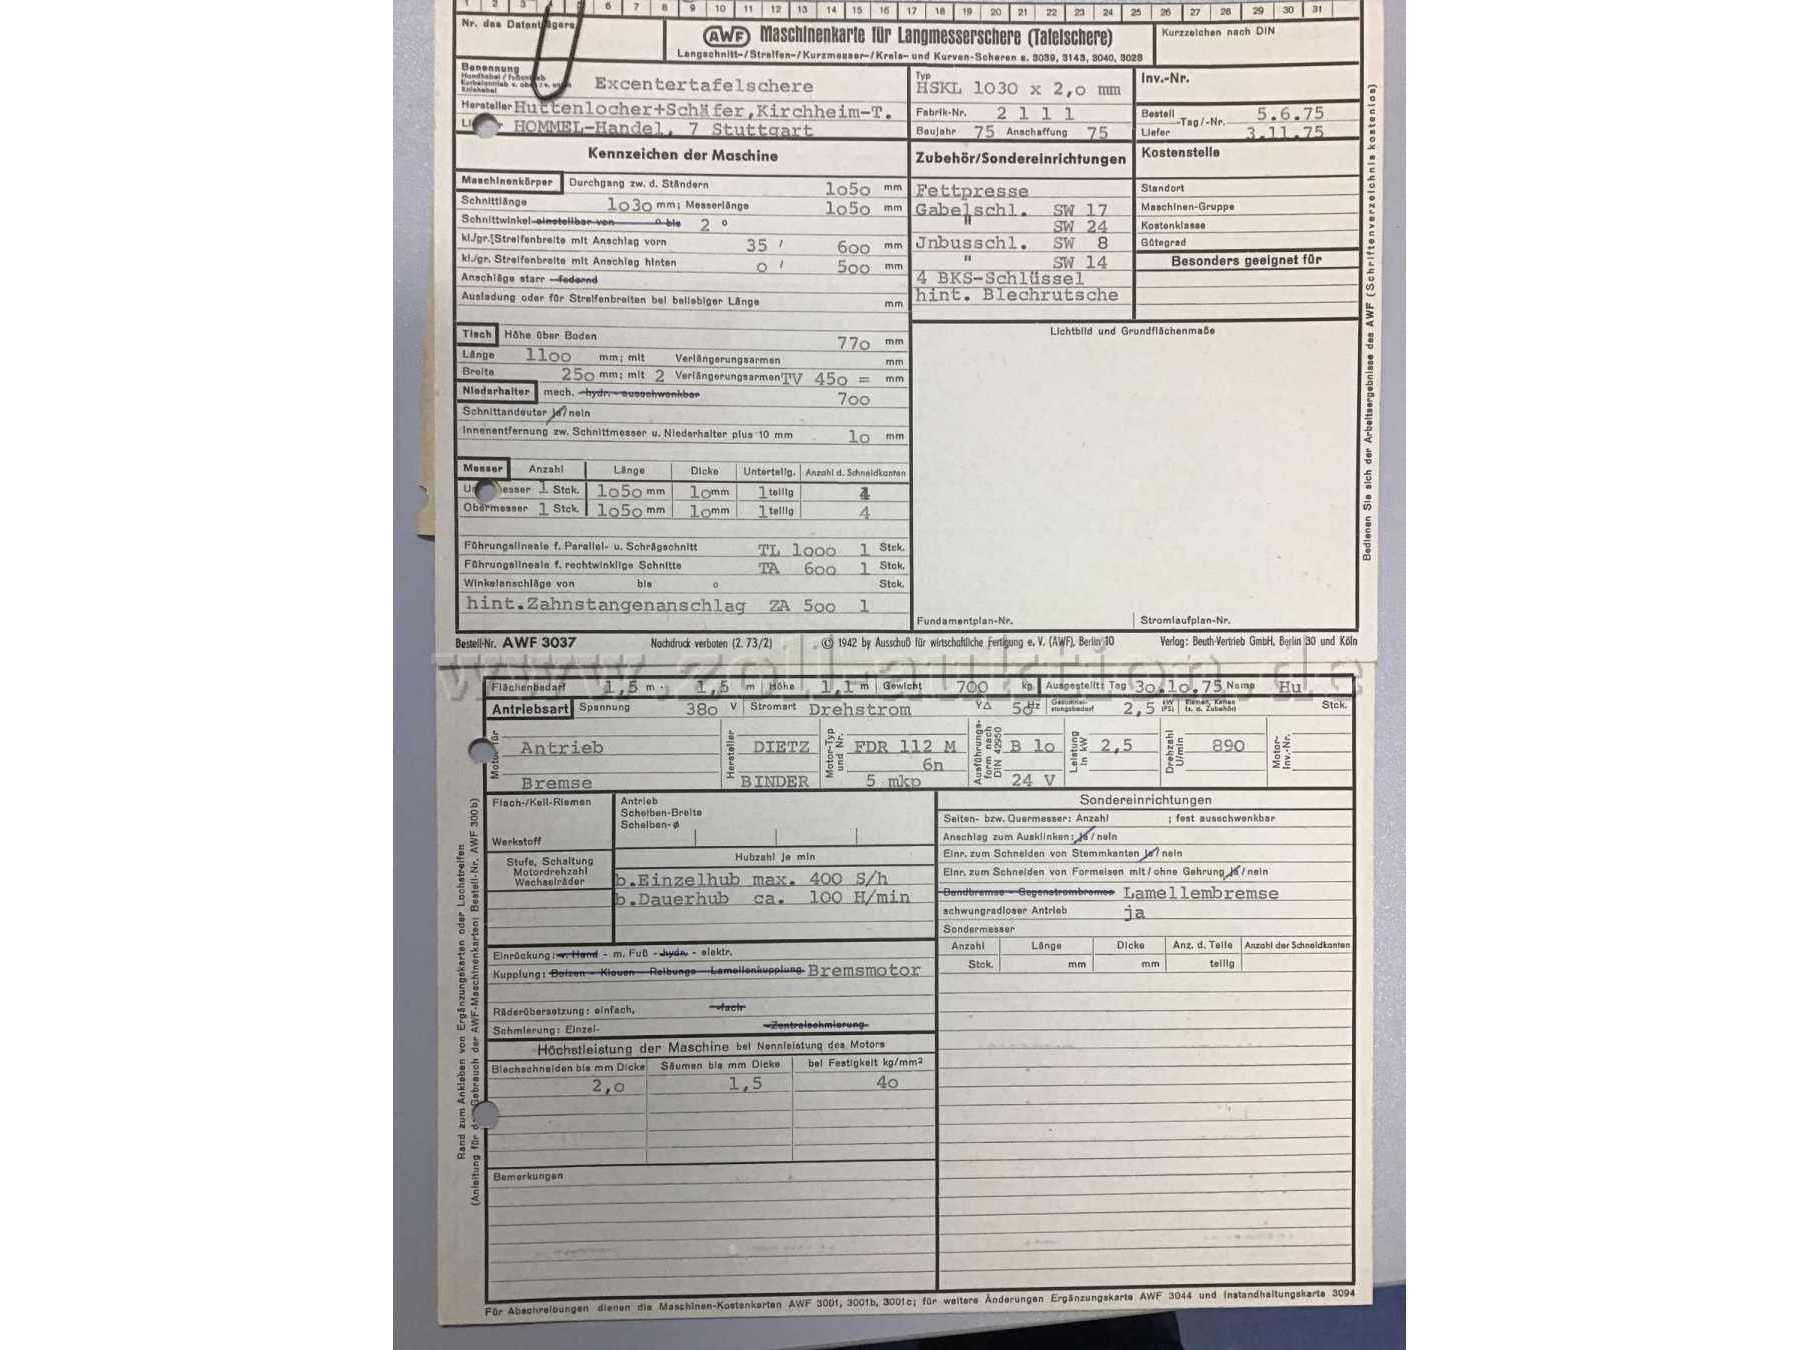 1 2 3 4 5 6 7 8 9 10 11 12 13 14 15 16 17 18 19 20 21 22 23 24 25 26 27 28 29 30 31
Nr. des Datenträgers
AWF Maschinenkarte für Langmesserschere (Tafelschere)
Langschnitt-/Streifen-/Kurzmesser-/Kreis- und Kurven-Scheren s. 3039, 3143, 3040, 3028
Kurzzeichen nach DIN
Benennung Excentertafelschere
Typ HSKL 1030 x 2,0 mm
Inv.-Nr.
Hersteller Huttenlocher+Schäfer,Kirchheim-T.
Fabrik-Nr. 2 1 1 1
Bestell -Tag/-Nr. 5.6.75
HOMMEL-Handel, 7 Stuttgart
Baujahr 75 Anschaffung 75
Liefer 3.11.75
Kennzeichen der Maschine
Zubehör/Sondereinrichtungen
Kostenstelle
Maschinenkörper Durchgang zw. d. Ständern 1050 mm
Schnittlänge 1030 mm; Messerlänge 1050 mm
Schnittwinkel einstellbar von ° bis 2 °
kl./gr. Streifenbreite mit Anschlag vorn 35 / 600 mm
kl./gr. Streifenbreite mit Anschlag hinten 0 / 500 mm
Anschläge starr - federnd
Ausladung oder für Streifenbreiten bei beliebiger Länge mm
Fettpresse
Gabelschl. SW 17
" SW 24
Jnbusschl. SW 8
" SW 14
4 BKS-Schlüssel
hint. Blechrutsche
Standort
Maschinen-Gruppe
Kostenklasse
Gütegrad
Besonders geeignet für
Lichtbild und Grundflächenmaße
Tisch Höhe über Boden 770 mm
Länge 1100 mm; mit Verlängerungsarmen mm
Breite 250 mm; mit 2 Verlängerungsarmen TV 450 = mm
Niederhalter mech. - hydr. - ausschwenkbar 700
Schnittandeuter ja/nein
Innenentfernung zw. Schnittmesser u. Niederhalter plus 10 mm 10 mm
Messer Anzahl Länge Dicke Unterteilg. Anzahl d. Schneidkanten
messer 1 Stck. 1050 mm 10 mm 1 teilig 4
Obermesser 1 Stck. 1050 mm 10 mm 1 teilig 4
Führungslineale f. Parallel- u. Schrägschnitt TL 1000 1 Stck.
Führungslineale f. rechtwinklige Schnitte TA 600 1 Stck.
Winkelanschläge von bis ° Stck.
hint.Zahnstangenanschlag ZA 500 1
Fundamentplan-Nr.
Stromlaufplan-Nr.
Bedienen Sie sich der Arbeitsergebnisse des AWF (Schriftenverzeichnis kostenlos)
Bestell-Nr. AWF 3037 Nachdruck verboten (2. 73/2) © 1942 by Ausschuß für wirtschaftliche Fertigung e. V. (AWF), Berlin 10 Verlag: Beuth-Vertrieb GmbH, Berlin 30 und Köln
www.zoll-auktion.de
Flächenbedarf 1,5 m · 1,5 m Höhe 1,1 m Gewicht 700 kp Ausgestellt: Tag 30.10.75 Name Hu
Antriebsart Spannung 380 V Stromart Drehstrom Y∆ 50 Hz 2,5 kW (PS) Stck.
Antrieb Hersteller DIETZ Motor-Typ und Nr. FDR 112 M Ausführungsform nach DIN 42950 B 10 Leistung in kW 2,5 Drehzahl U/min 890 Motor-Inv.-Nr.
6n
Bremse BINDER 5 mkp 24 V
Flach-/Keil-Riemen
Werkstoff
Antrieb
Scheiben-Breite
Scheiben-ø
Stufe, Schaltung
Motordrehzahl
Wechselräder
Hubzahl je min
b.Einzelhub max. 400 S/h
b.Dauerhub ca. 100 H/min
Einrückung: v. Hand - m. Fuß - hydr. - elektr.
Kupplung: Bolzen - Klauen - Reibungs - Lamellenkupplung Bremsmotor
Räderübersetzung: einfach, -fach
Schmierung: Einzel- -Zentralschmierung-
Höchstleistung der Maschine bei Nennleistung des Motors
Blechschneiden bis mm Dicke Säumen bis mm Dicke bei Festigkeit kg/mm²
2,0 1,5 40
Bemerkungen
Sondereinrichtungen
Seiten- bzw. Quermesser: Anzahl ; fest ausschwenkbar
Anschlag zum Ausklinken: ja/nein
Einr. zum Schneiden von Stemmkanten ja/nein
Einr. zum Schneiden von Formeisen mit/ohne Gehrung ja/nein
Bandbremse - Gegenstrombremse Lamellembremse
schwungradloser Antrieb ja
Sondermesser
Anzahl Länge Dicke Anz. d. Teile Anzahl der Schneidkanten
Stck. mm mm teilig
Rand zum Ankleben von Ergänzungskarten oder Lochstreifen
(Anleitung für Gebrauch der AWF-Maschinenkarten: Bestell-Nr. AWF 300b)
Für Abschreibungen dienen die Maschinen-Kostenkarten AWF 3001, 3001b, 3001c; für weitere Änderungen Ergänzungskarte AWF 3044 und Instandhaltungskarte 3094